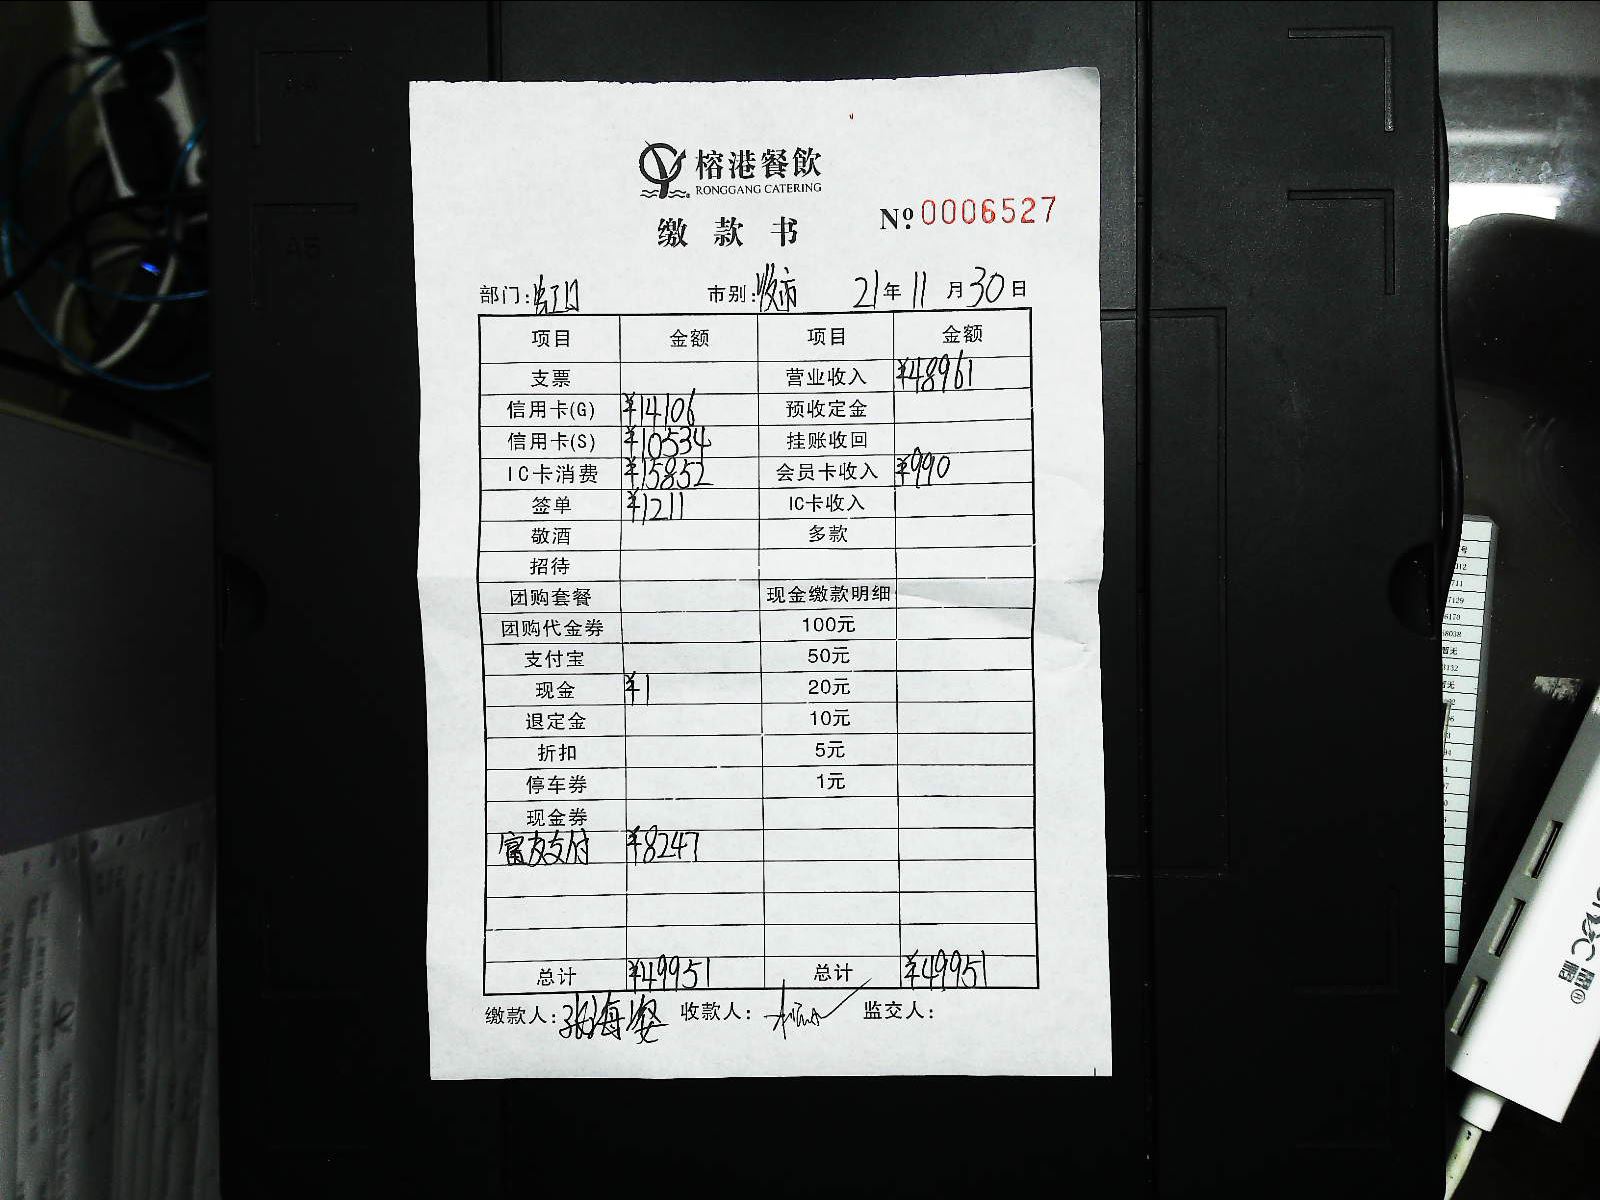 榕港餐飲
RONGGANG CATERING
缴款书
№ 0006527
部门: 市别:收市 21年11月30日
项目 金额 项目 金额
支票 营业收入 ¥48961
信用卡(G) ¥14106 预收定金
信用卡(S) ¥10534 挂账收回
IC卡消费 ¥15852 会员卡收入 ¥990
签单 ¥1211 IC卡收入
敬酒 多款
招待
团购套餐 现金缴款明细
团购代金券 100元
支付宝 50元
现金 ¥1 20元
退定金 10元
折扣 5元
停车券 1元
现金券
富友支付 ¥8247
总计 ¥49951 总计 ¥49951
缴款人: 收款人: 监交人:
A5